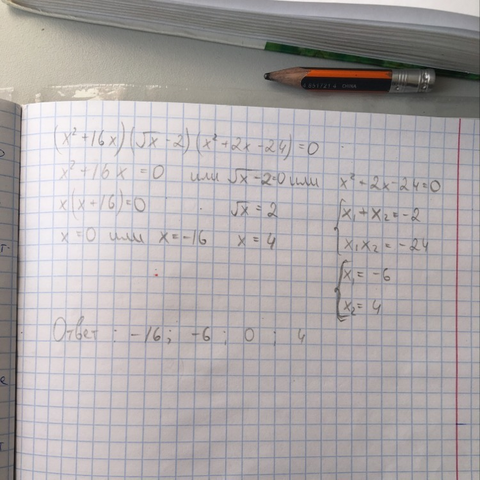 (x² + 16x)(√x - 2)(x² + 2x - 24) = 0
x² + 16x = 0 или √x - 2 = 0 или x² - 2x - 24 = 0
x(x + 16) = 0 √x = 2 x₁ + x₂ = -2
x = 0 или x = -16 x = 4 x₁x₂ = -24
x₁ = -6
x₂ = 4
Ответ: -16; -6; 0; 4
CHINA